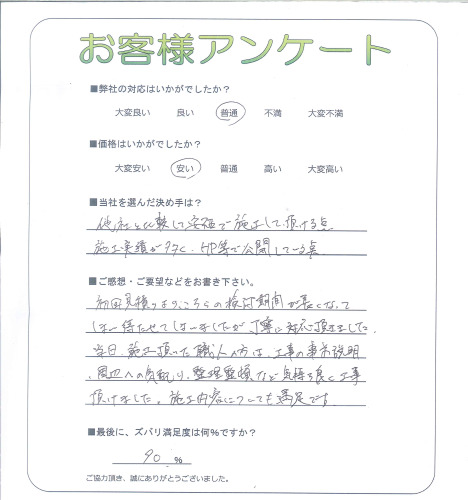 お客様アンケート
■弊社の対応はいかがでしたか？
大変良い　良い　普通　不満　大変不満
■価格はいかがでしたか？
大変安い　安い　普通　高い　大変高い
■当社を選んだ決め手は？
他社と比較して安価で施工して頂ける点
施工実績が多く、HP等で公開している点
■ご感想・ご要望などをお書き下さい。
初回見積りより、こちらの検討期間が長くなって
しまい待たせてしまいましたが丁寧に対応頂きました。
当日、施工頂いた職人の方は、工事の事前説明
、周辺への気配り、整理整頓など気持ち良く工事
頂けました。施工内容についても満足です
■最後に、ズバリ満足度は何%ですか？
90 %
ご協力頂き、誠にありがとうございました。